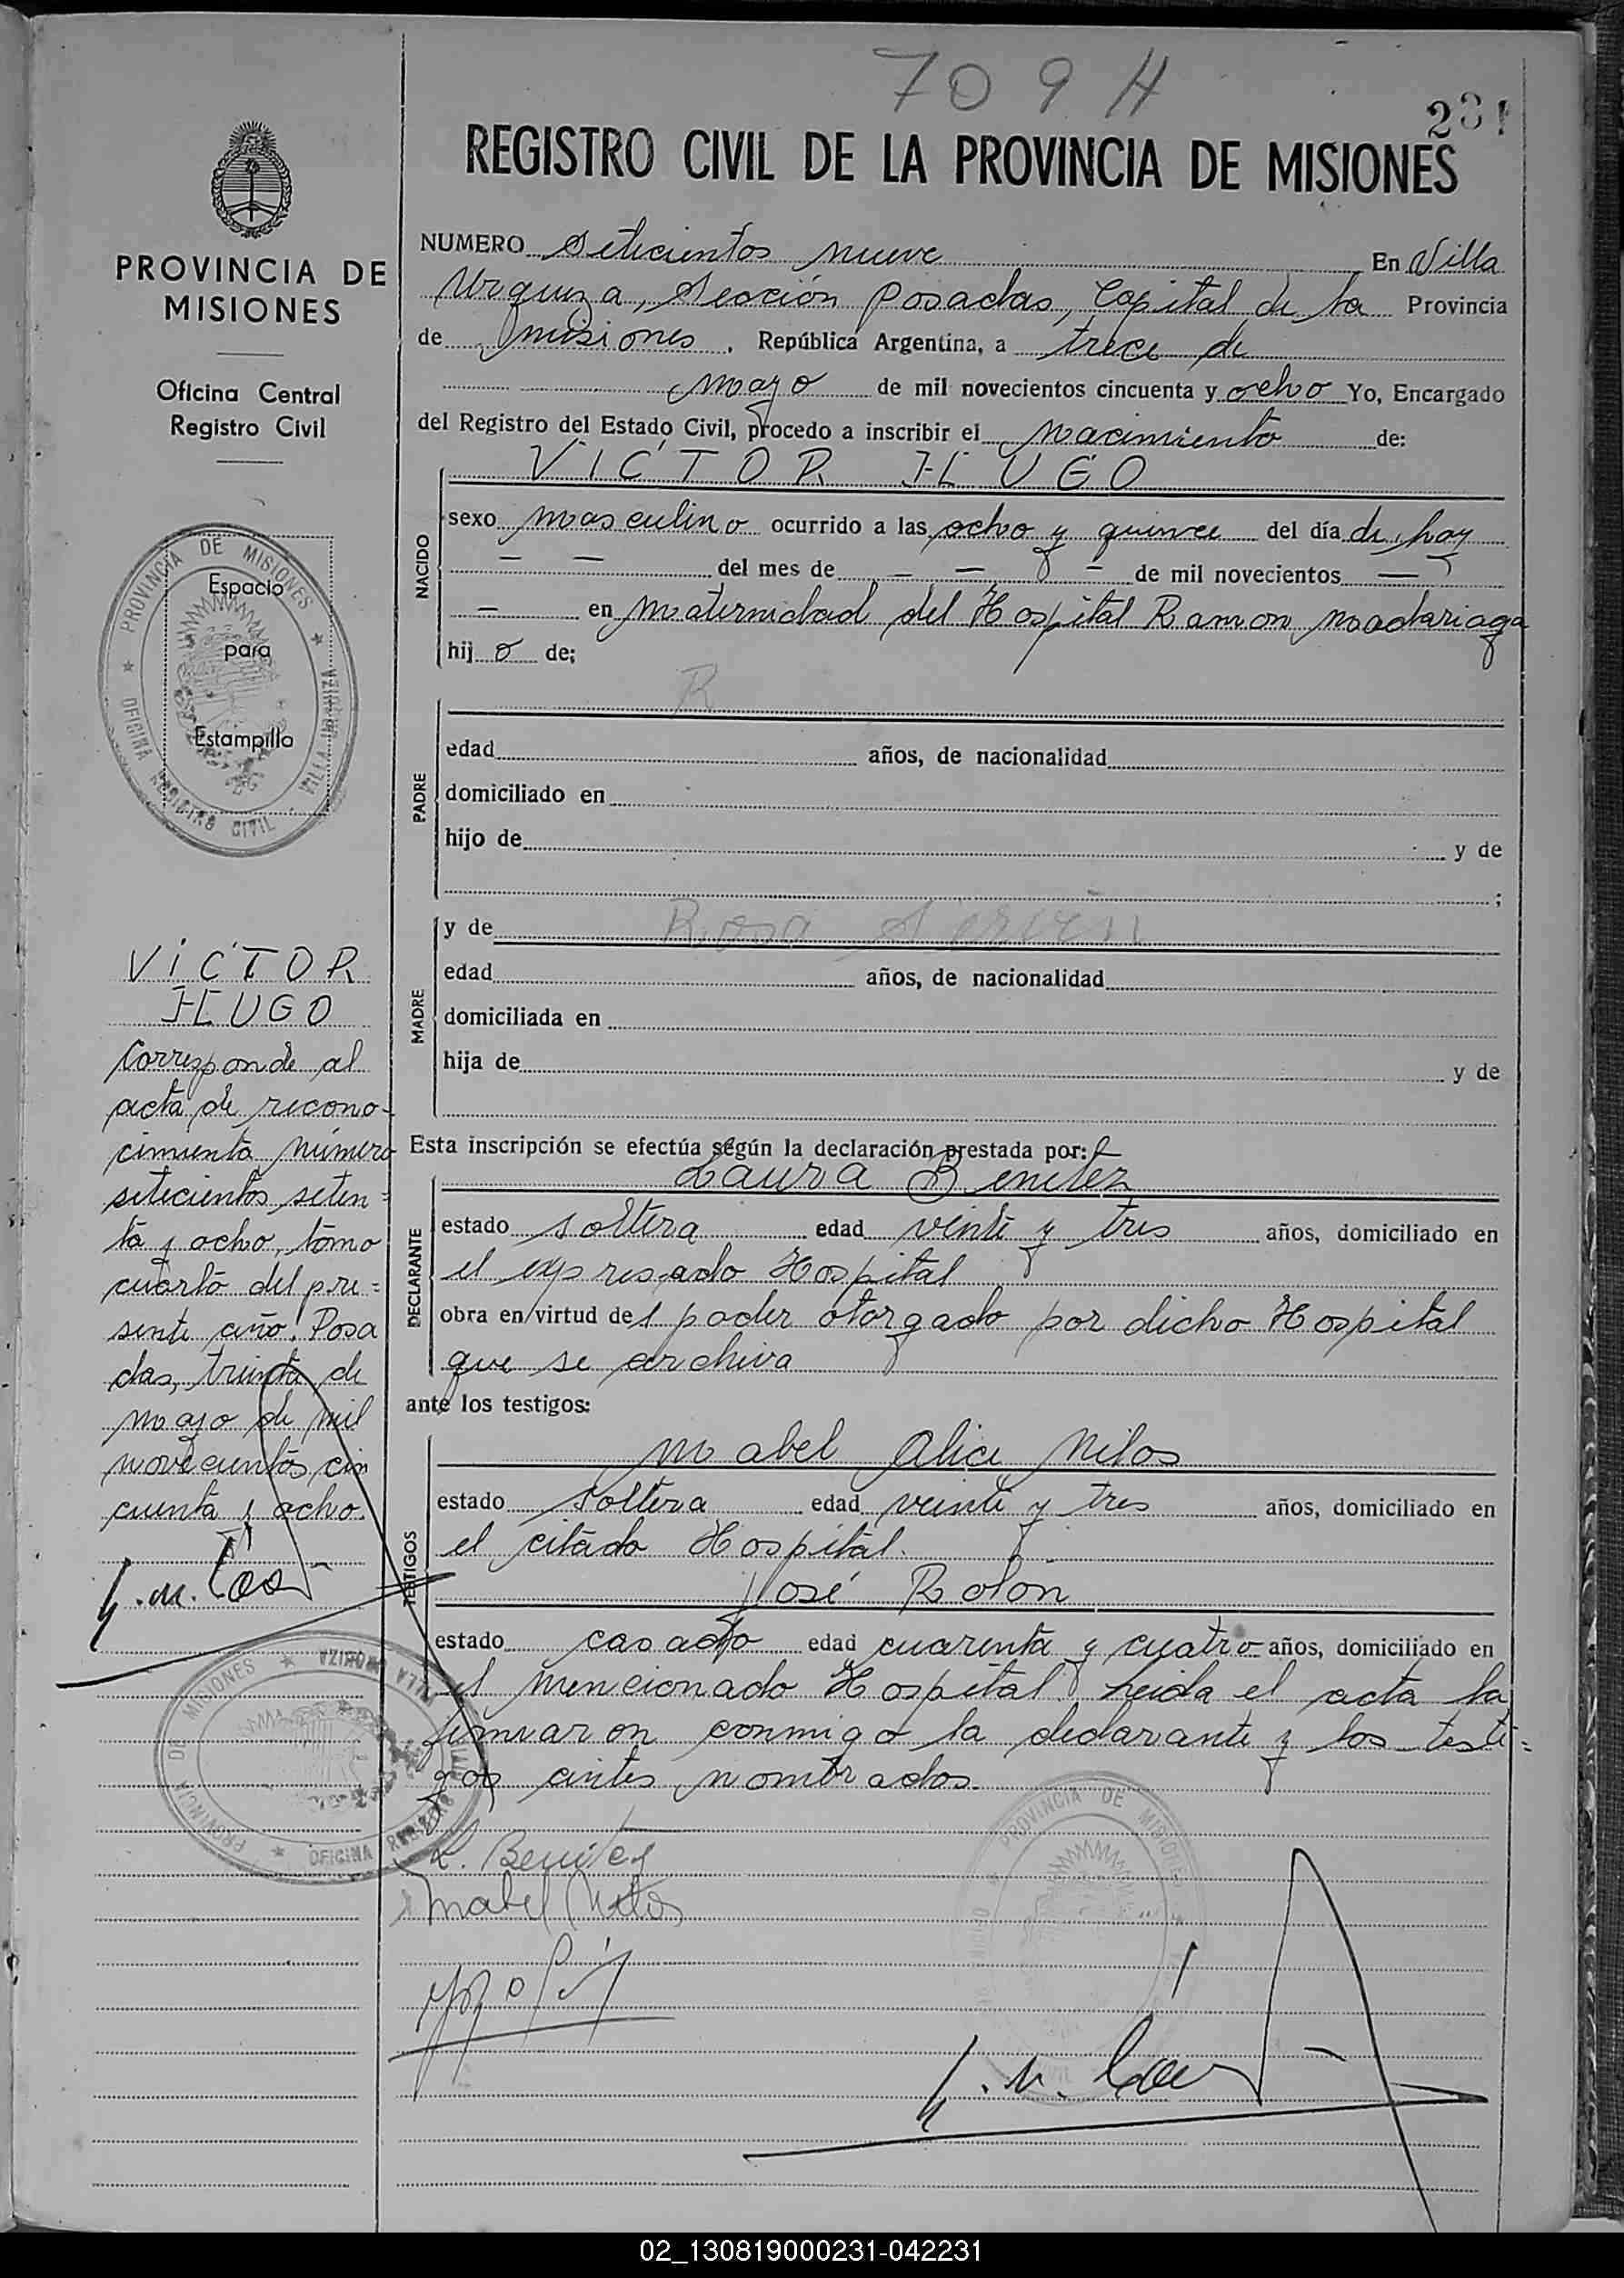 709 H
231
REGISTRO CIVIL DE LA PROVINCIA DE MISIONES
PROVINCIA DE
MISIONES
Oficina Central
Registro Civil
NUMERO setecientos nueve En Villa
Urquiza, Sección Posadas, Capital de la Provincia
de misiones, República Argentina, a trece de
mayo de mil novecientos cincuenta y ocho Yo, Encargado
del Registro del Estado Civil, procedo a inscribir el nacimiento de:
NACIDO
VICTOR HUGO
sexo masculino ocurrido a las ocho y quince del día de hoy
— — del mes de — — — de mil novecientos —
— en maternidad del Hospital Ramon madariaga
hij o de;
PROVINCIA DE MISIONES
OFICINA REGISTRO CIVIL
VILLA URQUIZA
Espacio
para
Estampilla
PADRE
R
edad años, de nacionalidad
domiciliado en
hijo de y de
;
MADRE
y de Rosa
edad años, de nacionalidad
domiciliada en
hija de y de
VICTOR
HUGO
Corresponde al
acta de recono-
cimiento número
setecientos seten=
ta y ocho, tomo
cuarto del pre=
sente año. Posa
das, treinta de
mayo de mil
novecientos cin
cuenta y ocho.
Esta inscripción se efectúa según la declaración prestada por:
DECLARANTE
Laura Benitez
estado soltera edad veinte y tres años, domiciliado en
el expresado Hospital
obra en virtud del poder otorgado por dicho Hospital
que se archiva
ante los testigos:
TESTIGOS
mabel alice Nilos
estado soltera edad veinte y tres años, domiciliado en
el citado Hospital.
José Rolon
estado casado edad cuarenta y cuatro años, domiciliado en
el mencionado Hospital. Leida el acta la
firmaron conmigo la declarante y los testi=
gos antes nombrados.
PROVINCIA DE MISIONES
VILLA URQUIZA
OFICINA
L. Benitez
Mabel Nilos
PROVINCIA DE MISIONES
02_130819000231-042231